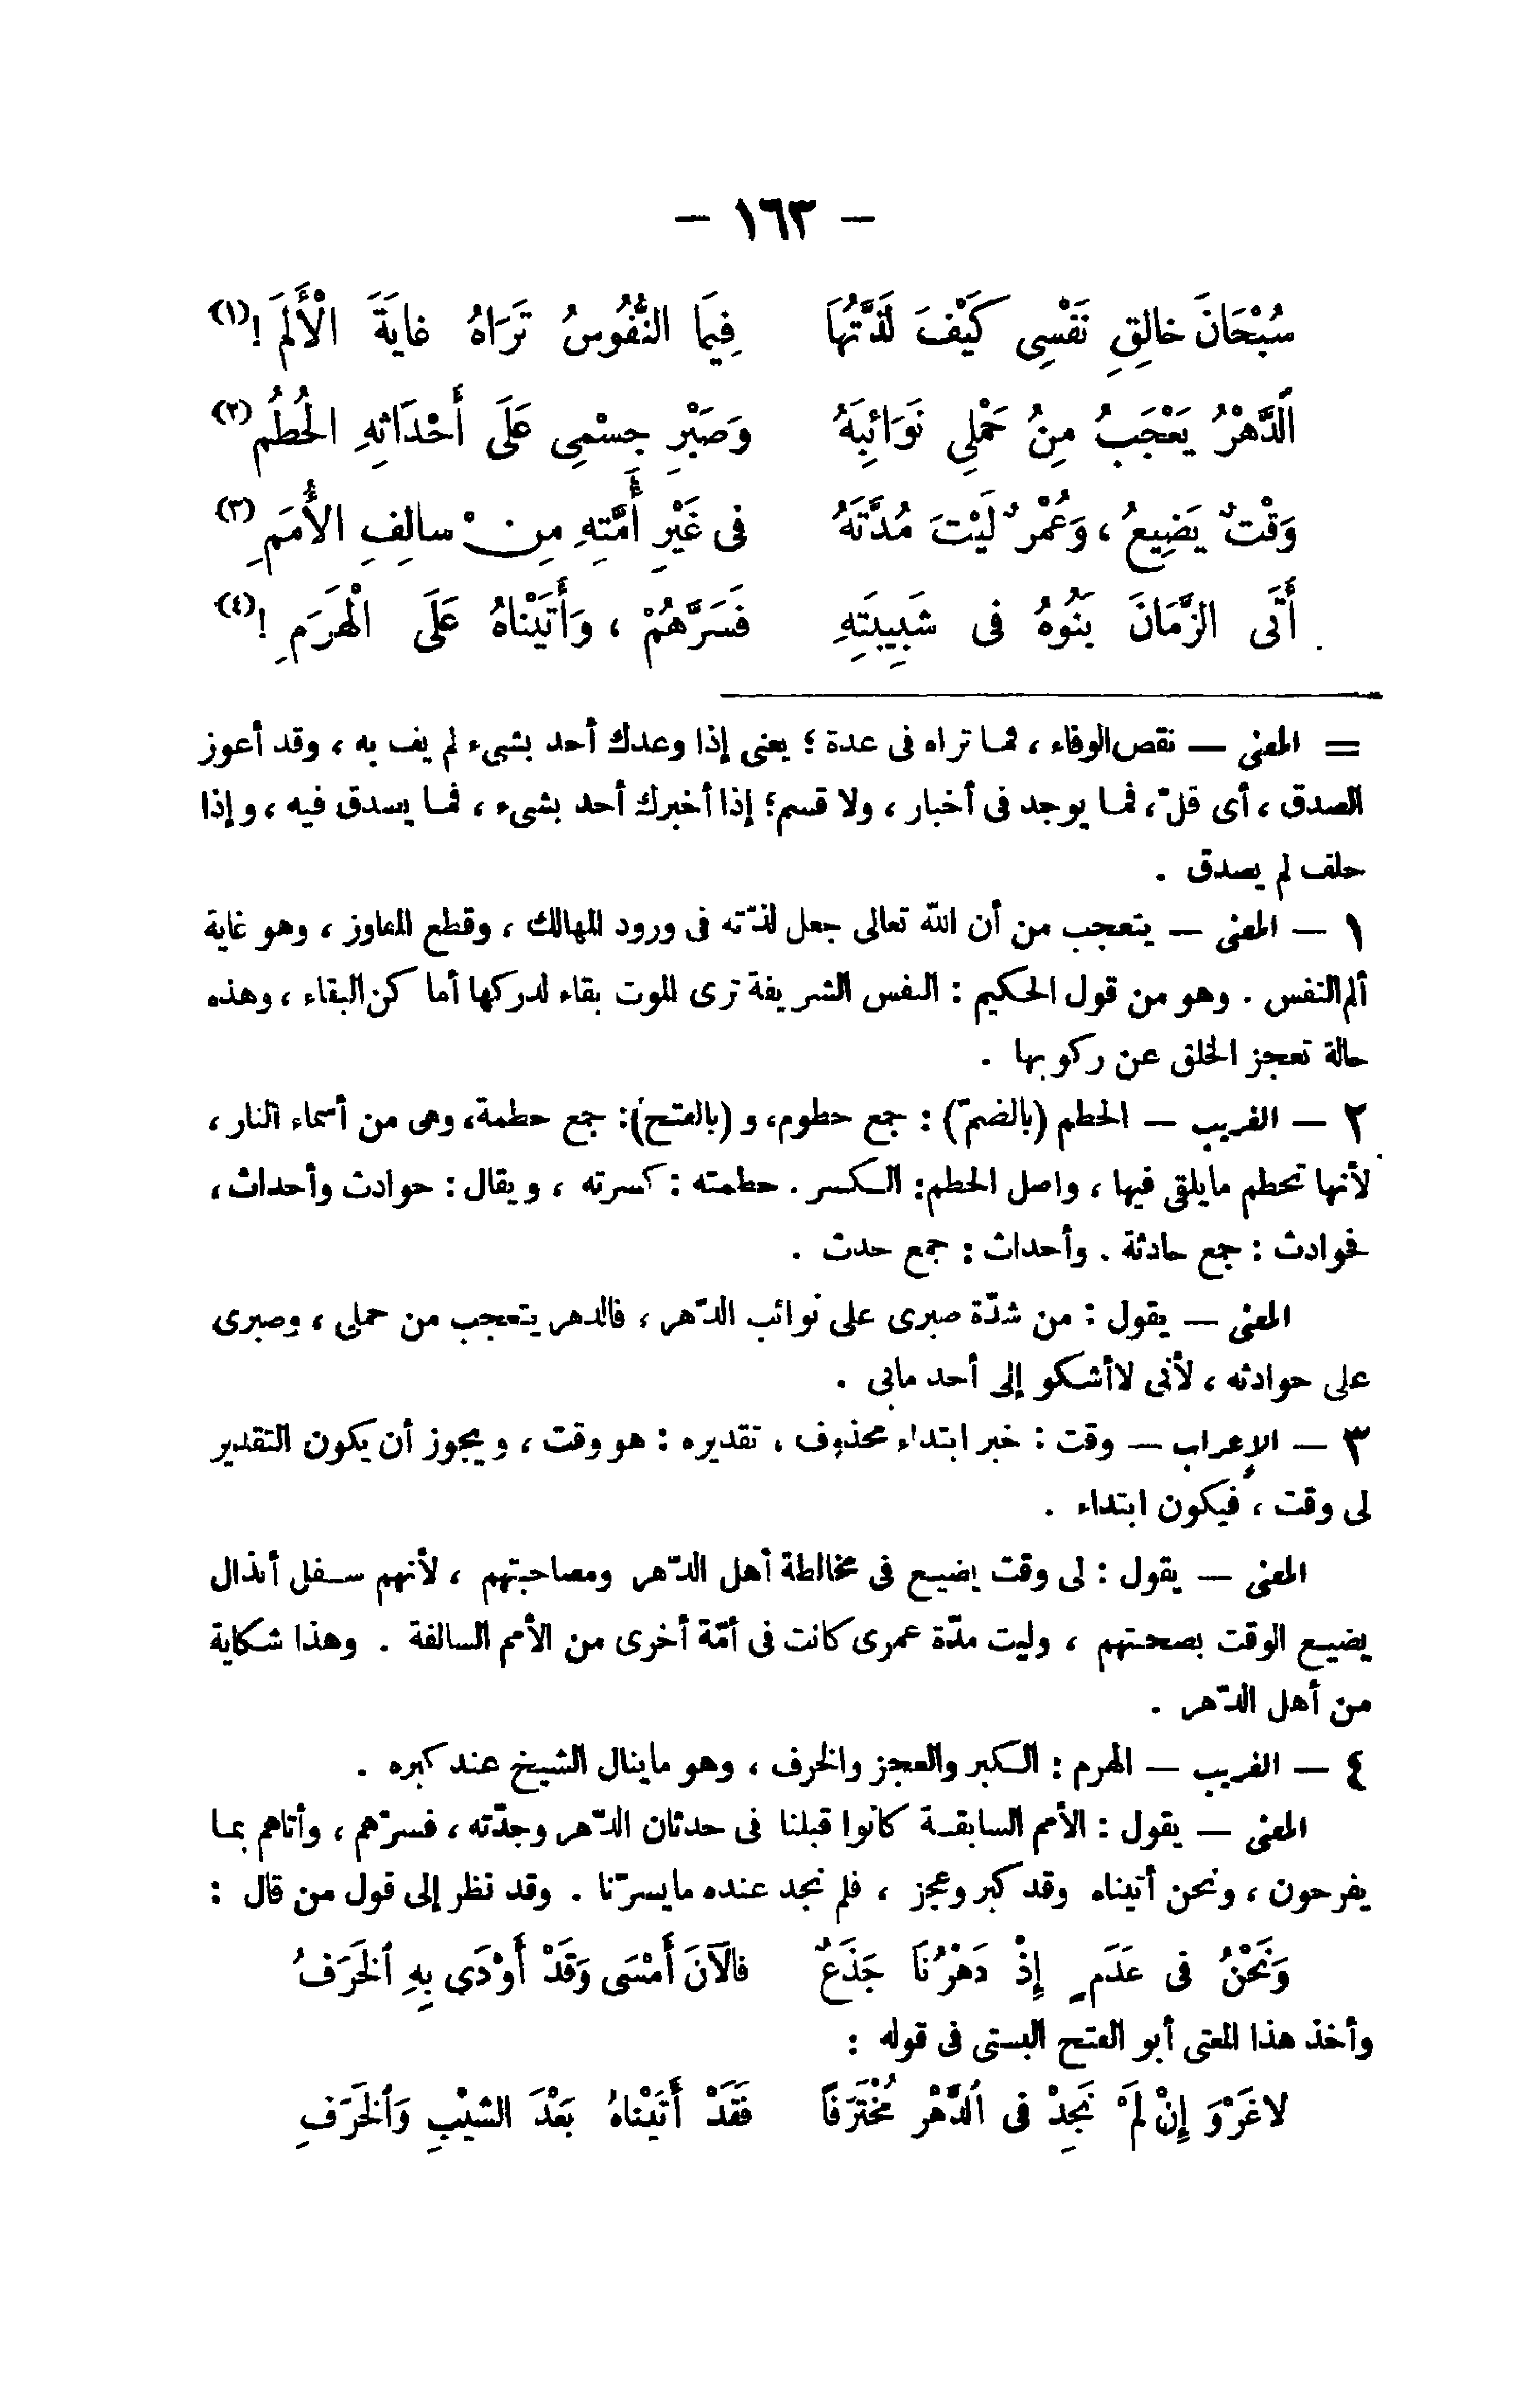 — ١٦٣ —
سُبْحَانَ خالِقِ نَفْسِى كَيْفَ لَذَّتُهَا فِيمَا النُّفُوسُ تَرَاهُ غايَةَ الْأَلَمِ !(١)
الَدَّهْرُ يَعْجَبُ مِنُ حَمْلِى نَوَائِبَهُ وَصَبْرِ جِسْمِى عَلَى أَحْدَاثِهِ الحُطُمِ(٢)
وَقْتٌ يَضِيعُ، وَعُمْرٌ لَيْتَ مُدَّتَهُ فى غَيْرِ أُمَّتِهِ مِنْ سالِفِ الأُمَمِ(٣)
أَتَى الزَّمَانَ بَنُوهُ فى شَبِيبَتِهِ فَسَرَّهُمْ ، وَأَتَيْنَاهُ عَلَى الْهَرَمِ !(٤)
= المعنى — نقص الوفاء ، فما تراه فى عدة ؛ يعنى إذا وعدك أحد بشىء لم يف به ، وقد أعوز
الصدق ، أى قلّ، فما يوجد فى أخبار ، ولا قسم؛ إذا أخبرك أحد بشىء ، فما يصدق فيه ، وإذا
حلف لم يصدق .
١ — المعنى — يتعجب من أن الله تعالى جعل لذّته فى ورود المهالك ، وقطع المفاوز ، وهو غاية
ألم النفس . وهو من قول الحكيم : النفس الشريفة ترى الموت بقاء لدركها أما كن البقاء ، وهذه
حالة تعجز الخلق عن ركوبها .
٢ — الغريب — الحطم (بالضمّ) : جمع حطوم، و (بالفتح): جمع حطمة، وهى من أسماء النار ،
لأنها تحطم مايلقى فيها ، واصل الحطم: الكسر . حطمته : كسرته ، ويقال : حوادث وأحداث،
فحوادث : جمع حادثة . وأحداث : جمع حدث .
المعنى — يقول : من شدّة صبرى على نوائب الدّهر ، فالدهر يتعجب من حملى ، وصبرى
على حوادثه ، لأنى لاأشكو إلى أحد مابى .
٣ — الإعراب — وقت : خبر ابتداء محذوف ، تقديره : هو وقت ، ويجوز أن يكون التقدير
لى وقت ، فيكون ابتداء .
المعنى — يقول : لى وقت يضيع فى مخالطة أهل الدّهر ومصاحبتهم ، لأنهم سفل أنذال
يضيع الوقت بصحبتهم ، وليت مدّة عمرى كانت فى أمّة أخرى من الأمم السالفة . وهذا شكاية
من أهل الدّهر .
٤ — الغريب — الهرم : الكبر والعجز والخرف ، وهو ماينال الشيخ عند كبره .
المعنى — يقول : الأمم السابقة كانوا قبلنا فى حدثان الدّهر وجدّته ، فسرّهم ، وأتاهم بما
يفرحون ، ونحن أتيناه وقد كبر وعجز ، فلم نجد عنده مايسرّنا . وقد نظر إلى قول من قال :
وَنَحْنُ فى عَدَمٍ إِذْ دَهْرُنَا جَذَعٌ فالآنَ أَمْسَى وَقَدْ أَوْدَى بِهِ الخَرَفُ
وأخذ هذا المعنى أبو الفتح البستى فى قوله :
لاغَرْوَ إِنْ لَمْ نَجِدْ فى الدَّهْرِ مُخْتَرَفًا فَقَدْ أَتَيْنَاهُ بَعْدَ الشيْبِ وَالخَرَفِ